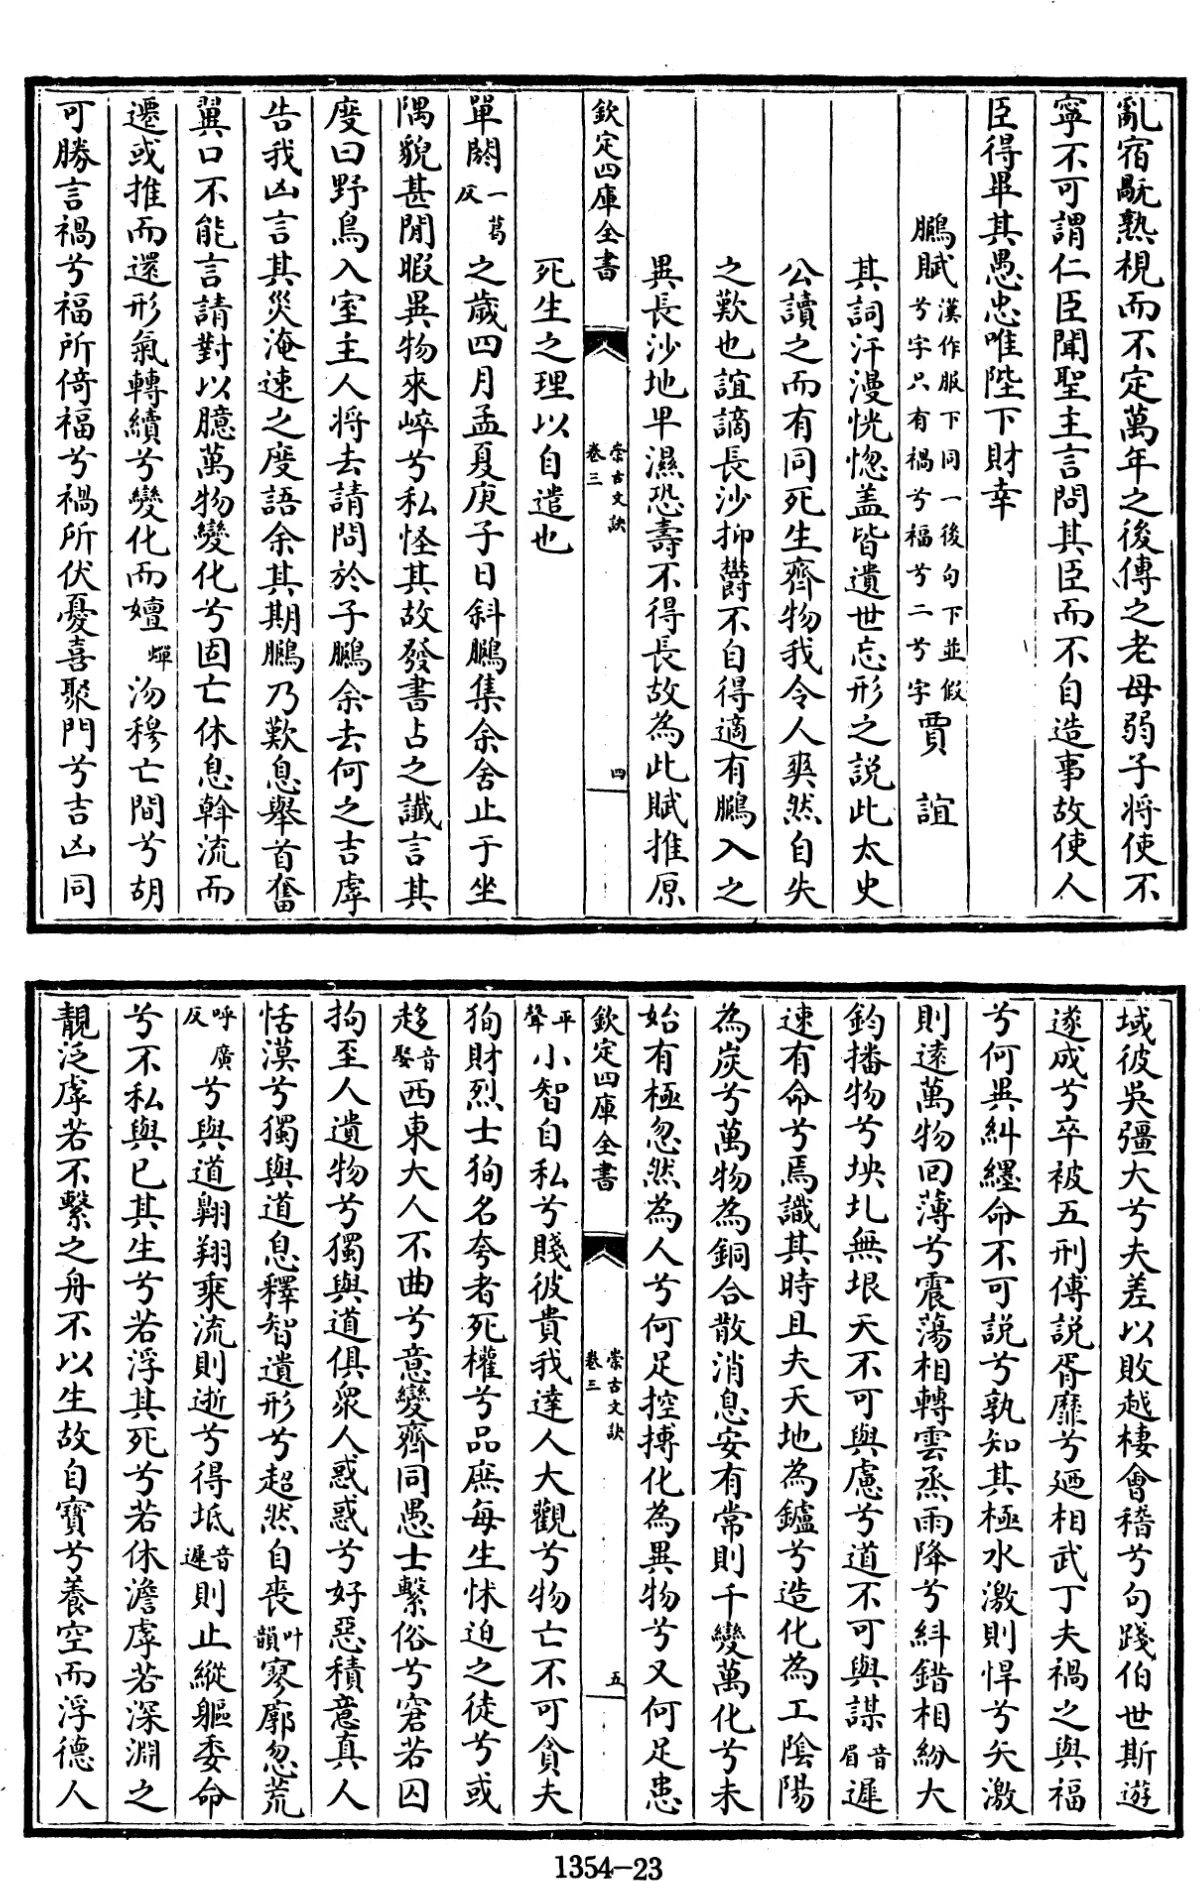 亂宿翫熟視而不定萬年之後傳之老母弱子將使不
寧不可謂仁臣聞聖主言問其臣而不自造事故使人
臣得畢其愚忠唯陛下財幸
鵩賦漢作服下同一後句下並假兮字只有禍兮福兮二兮字賈誼
其詞汗漫恍惚盖皆遺世忘形之説此太史
公讀之而有同死生齊物我令人爽然自失
之歎也誼謫長沙抑欝不自得適有鵩入之
異長沙地卑濕恐壽不得長故為此賦推原
欽定四庫全書
崇古文訣
卷三
四
死生之理以自遣也
單閼一葛反之歳四月孟夏庚子日斜鵩集余舍止于坐
隅貌甚閒暇異物來崪兮私怪其故發書占之讖言其
度曰野鳥入室主人將去請問於子鵩余去何之吉虖
告我凶言其災淹速之度語余其期鵩乃歎息舉首奮
翼口不能言請對以臆萬物變化兮固亡休息斡流而
遷或推而還形氣轉續兮變化而嬗蟬沕穆亡間兮胡
可勝言禍兮福所倚福兮禍所伏憂喜聚門兮吉凶同
域彼吳彊大兮夫差以敗越棲會稽兮句踐伯世斯遊
遂成兮卒被五刑傅説胥靡兮廼相武丁夫禍之與福
兮何異糾纆命不可説兮孰知其極水激則悍兮矢激
則遠萬物回薄兮震蕩相轉雲烝雨降兮糾錯相紛大
鈞播物兮坱圠無垠天不可與慮兮道不可與謀音眉遲
速有命兮焉識其時且夫天地為鑪兮造化為工陰陽
為炭兮萬物為銅合散消息安有常則千變萬化兮未
始有極忽然為人兮何足控摶化為異物兮又何足患
欽定四庫全書
崇古文訣
卷三
五
平聲小智自私兮賤彼貴我達人大觀兮物亡不可貪夫
狥財烈士狥名夸者死權兮品庶每生怵迫之徒兮或
趍音娶西東大人不曲兮意變齊同愚士繫俗兮窘若囚
拘至人遺物兮獨與道俱衆人惑惑兮好惡積意真人
恬漠兮獨與道息釋智遺形兮超然自喪叶韻寥廓忽荒
呼廣反兮與道翺翔乘流則逝兮得坻音遲則止縱軀委命
兮不私與已其生兮若浮其死兮若休澹虖若深淵之
靚泛虖若不繫之舟不以生故自寶兮養空而浮德人
1354-23